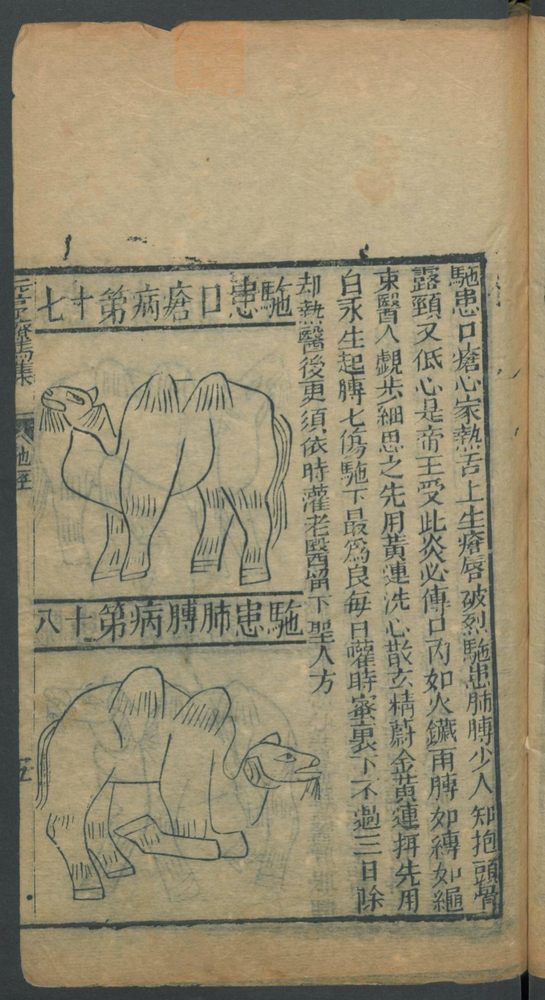 駞患口瘡心家熱舌上生瘡唇破烈駞患肺膊少人知抱頭骨
露頸又低心是帝王受此炎必傳口內如火鐵兩膊如縳如繩
束醫人覷步細思之先用黃連洗心散玄精蔚金黃連拼先用
白礬生起膊七傷駞下最為良每日嚾時蜜裏下不過三日除
却熱醫後更須依時灌老醫留下聖人方
駞患口瘡病第十七
駞患肺膊病第十八
元亨療馬集
駞經
五